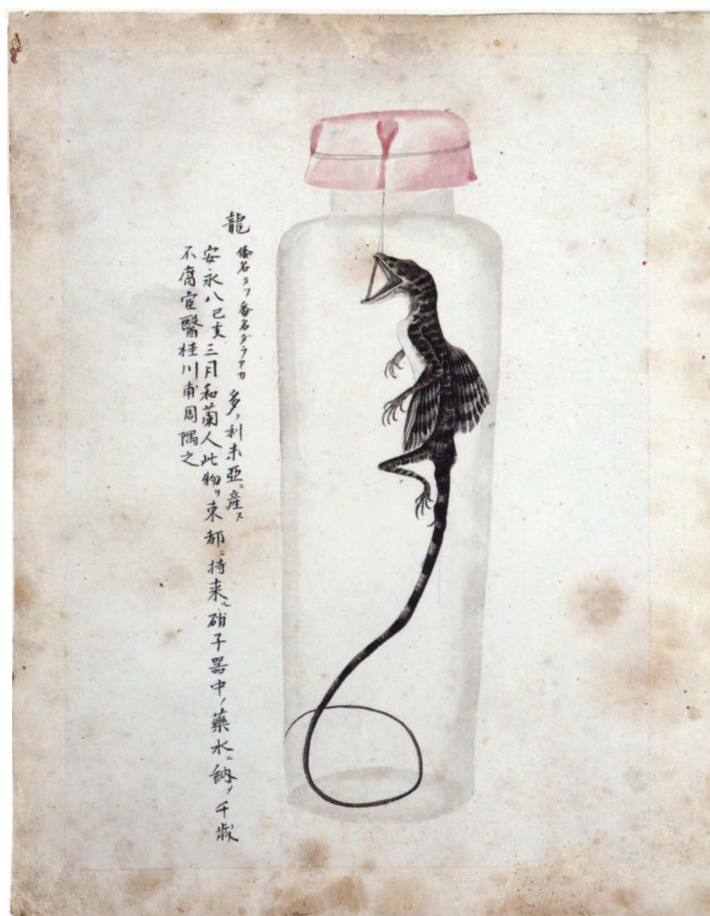 龍 倭名タツ番名ダラアカ 多ク利未亞ニ産ス
安永八己亥三月和蘭人此物ヲ東都ニ持来ル硝子器中ノ藥水ニ納メ千歳
不腐官醫桂川甫周隅之